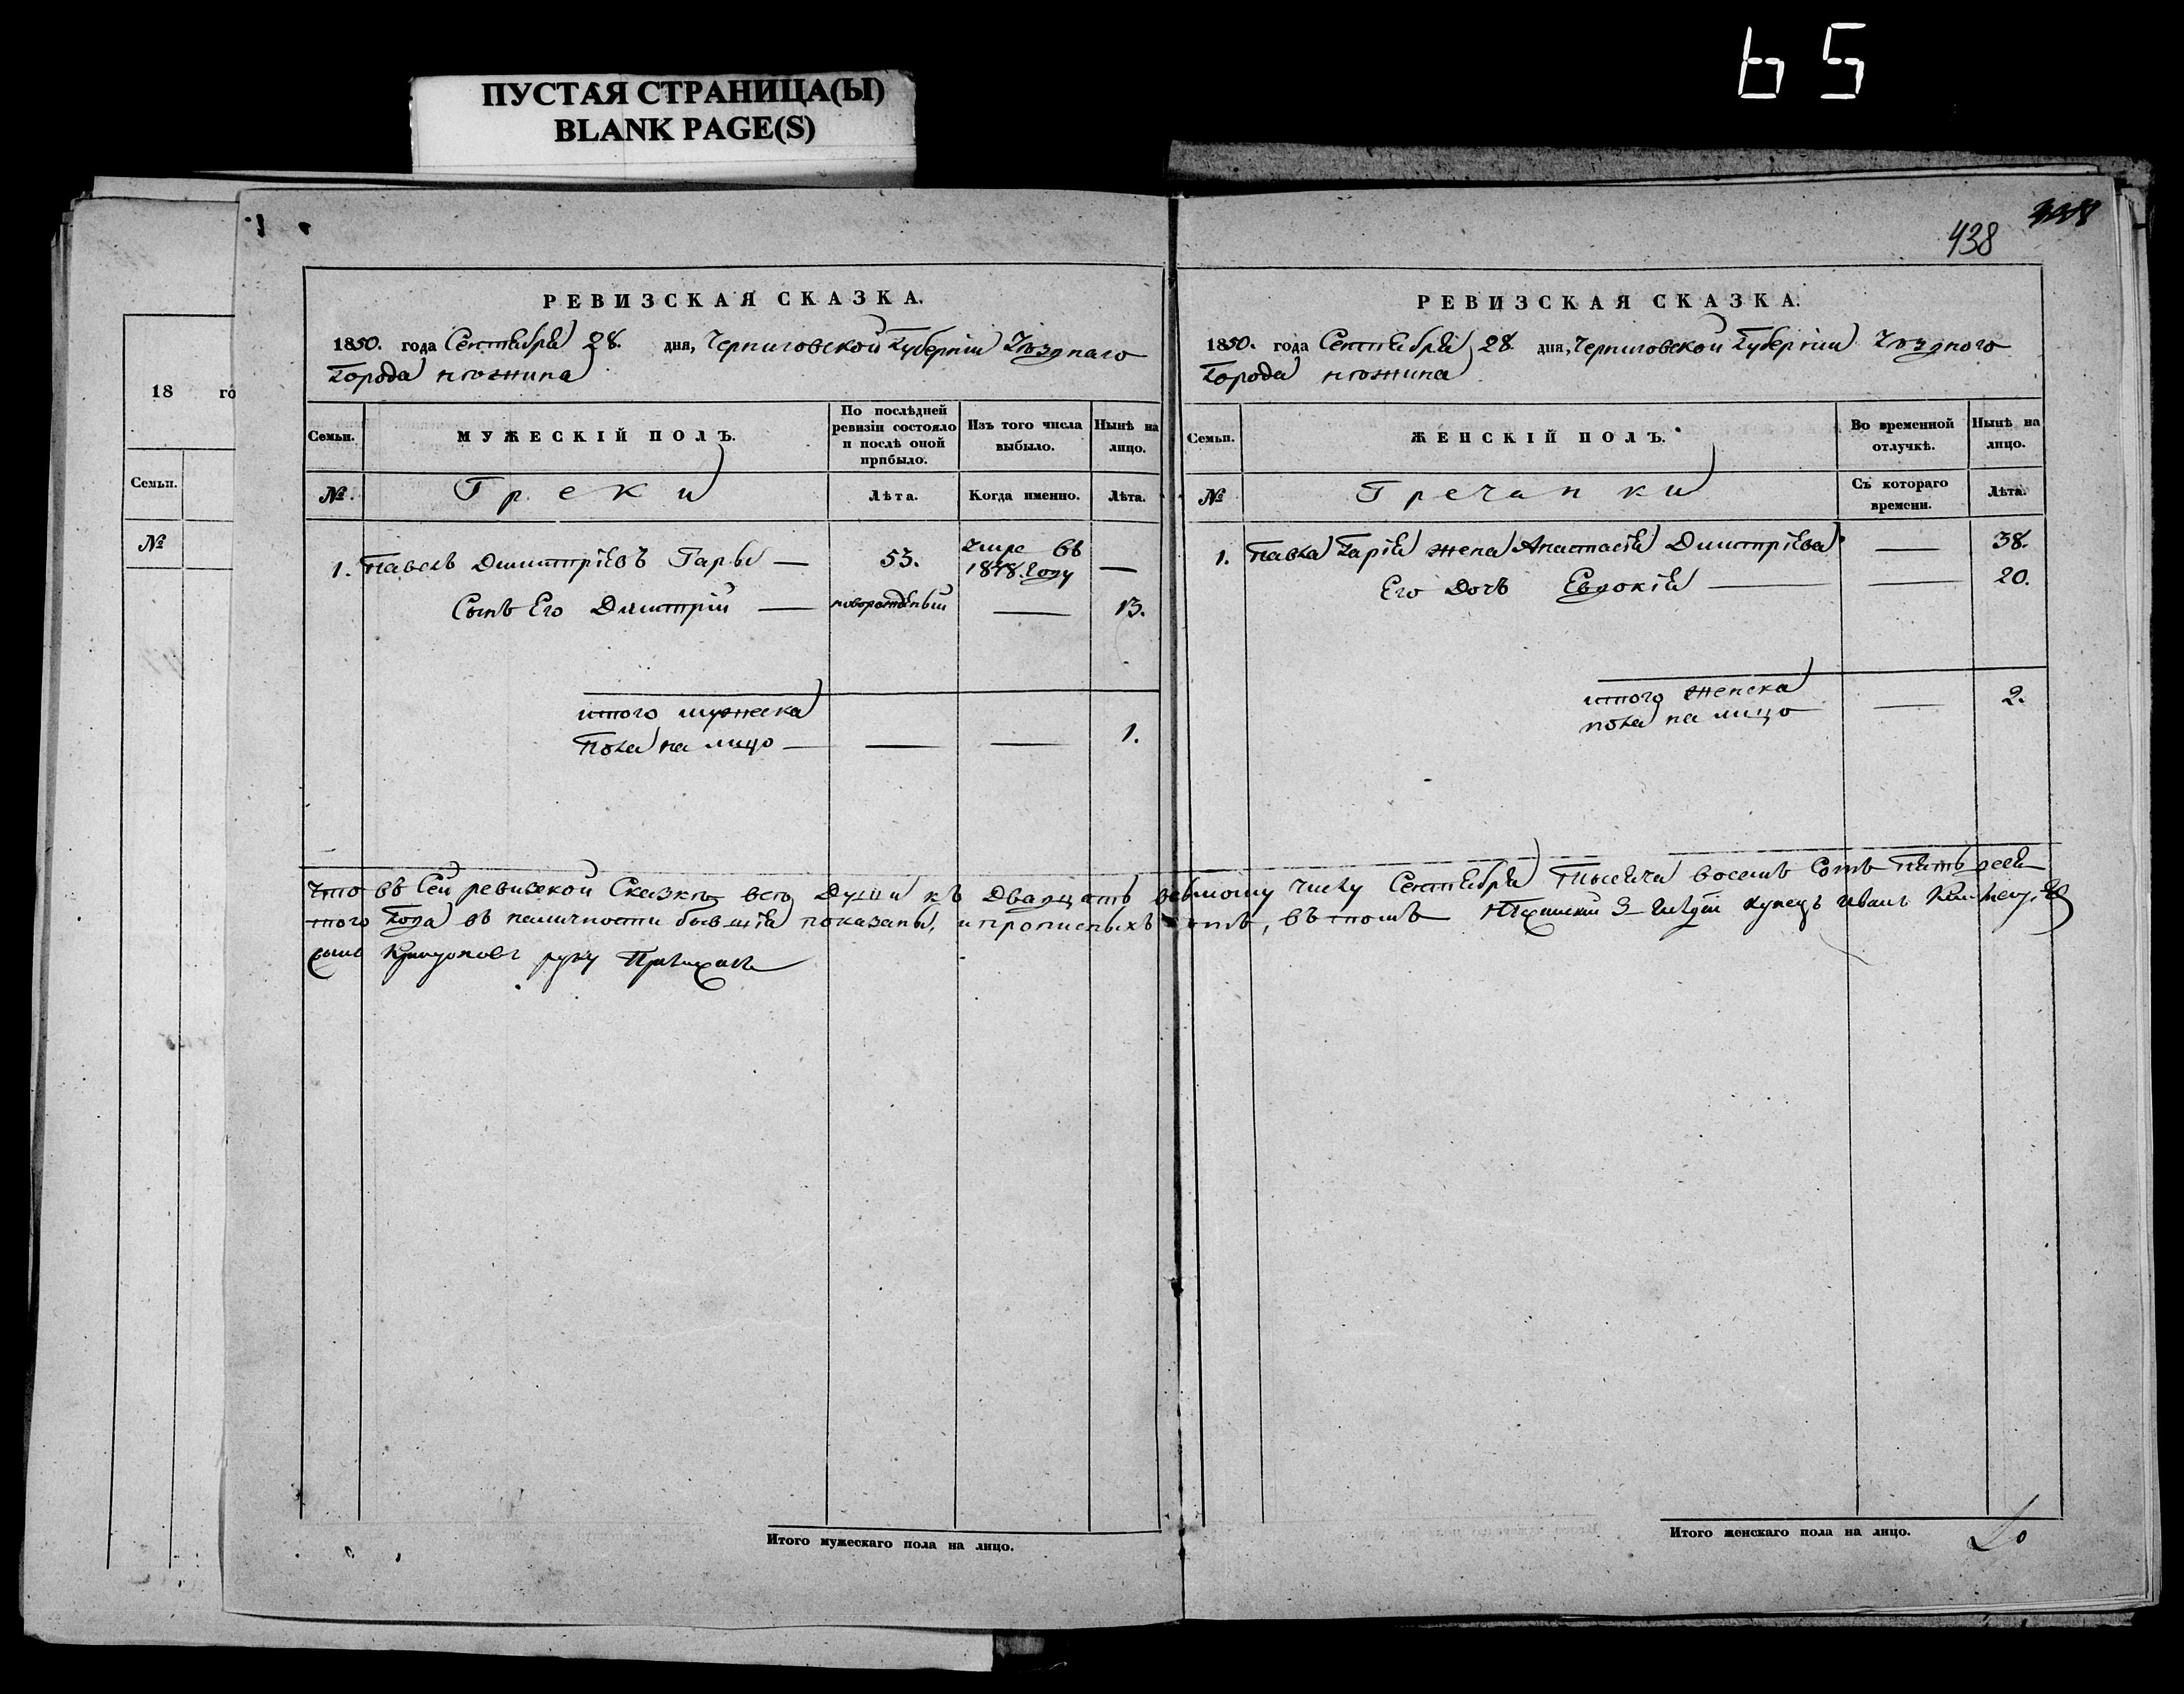 65
ПУСТАЯ СТРАНИЦА(Ы)
BLANK PAGE(S)
438
18 го
Семьи.
№
РЕВИЗСКАЯ СКАЗКА.
1850. года Сентября 28. дня, Черниговской Губерніи Уѣзднаго
Города Нѣжина
Семьи.
МУЖЕСКІЙ ПОЛЪ.
По послѣдней ревизіи состояло и послѣ оной прибыло.
Изъ того числа выбыло.
Нынѣ на лицо.
№.
Греки
Лѣта.
Когда именно.
Лѣта.
1. Павелъ Димитріевъ Гары — 53. умре въ 1848. году —
Сынъ Его Дмитрій — новорожденый — 13.
итого мужеска
пола на лицо — — — 1.
РЕВИЗСКАЯ СКАЗКА.
1850. года Сентября 28 дня, Черниговской Губерніи Уѣздного
Города Нѣжина
Семьи.
ЖЕНСКІЙ ПОЛЪ.
Во временной отлучкѣ.
Нынѣ на лицо.
№
Гречанки
Съ котораго времени.
Лѣта.
1. Павла Гарія жена Анастасія Димитріева — 38.
Его Дочь Евдокія — — 20.
итого женска
пола на лицо — 2.
Что въ Сей ревизской Сказкѣ всѣ Души къ Двадцать осьмому числу Сентября Тысяча восемь Сотъ Пять деся-
того Года въ наличности бывшія показаны, и прописныхъ нѣтъ, въ томъ Нѣжинский 3 Гилдіи купецъ Иванъ
сынъ руку Приложилъ
Итого мужескаго пола на лицо.
Итого женскаго пола на лицо.